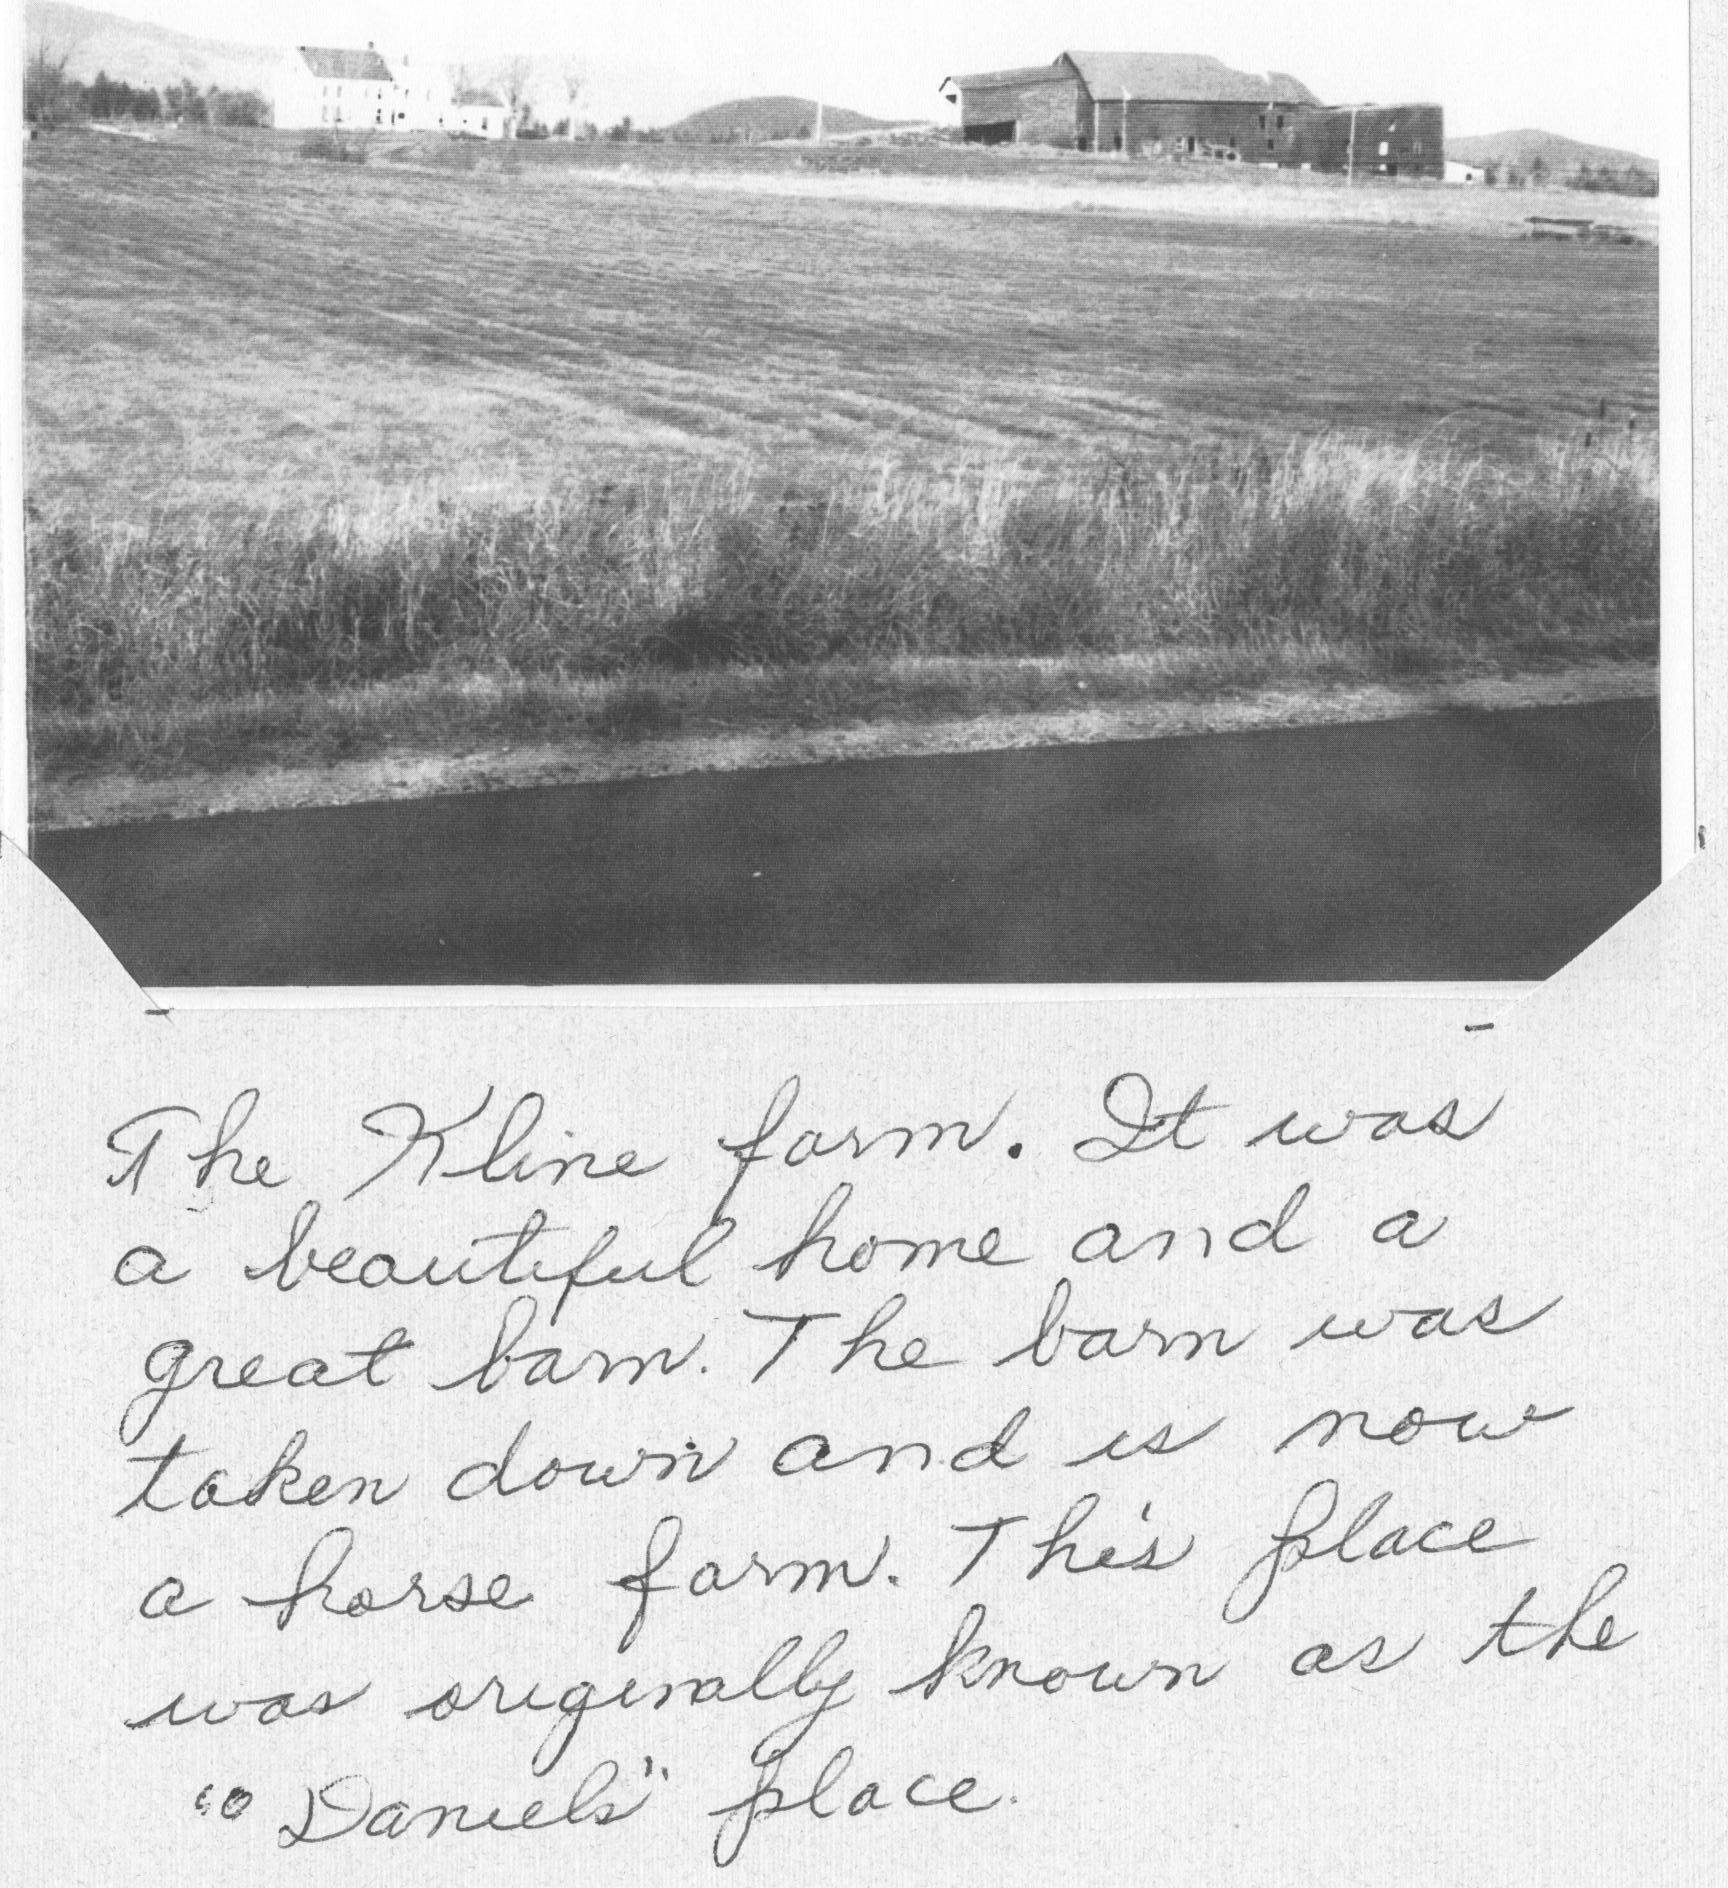 The Kline farm. It was
a beautiful home and a
great barn. The barn was
taken down and is now
a horse farm. This place
was originally known as the
"Daniels" place.